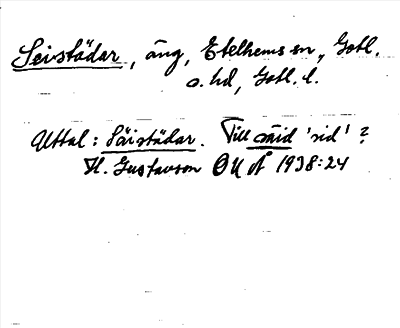 Seistädar, äng, Etelhems sn, Gotl.
s. hd, Gotl. l.
Uttal: Säistädar. Till säid 'sid'?
H. Gustavson OUÅ 1938:24